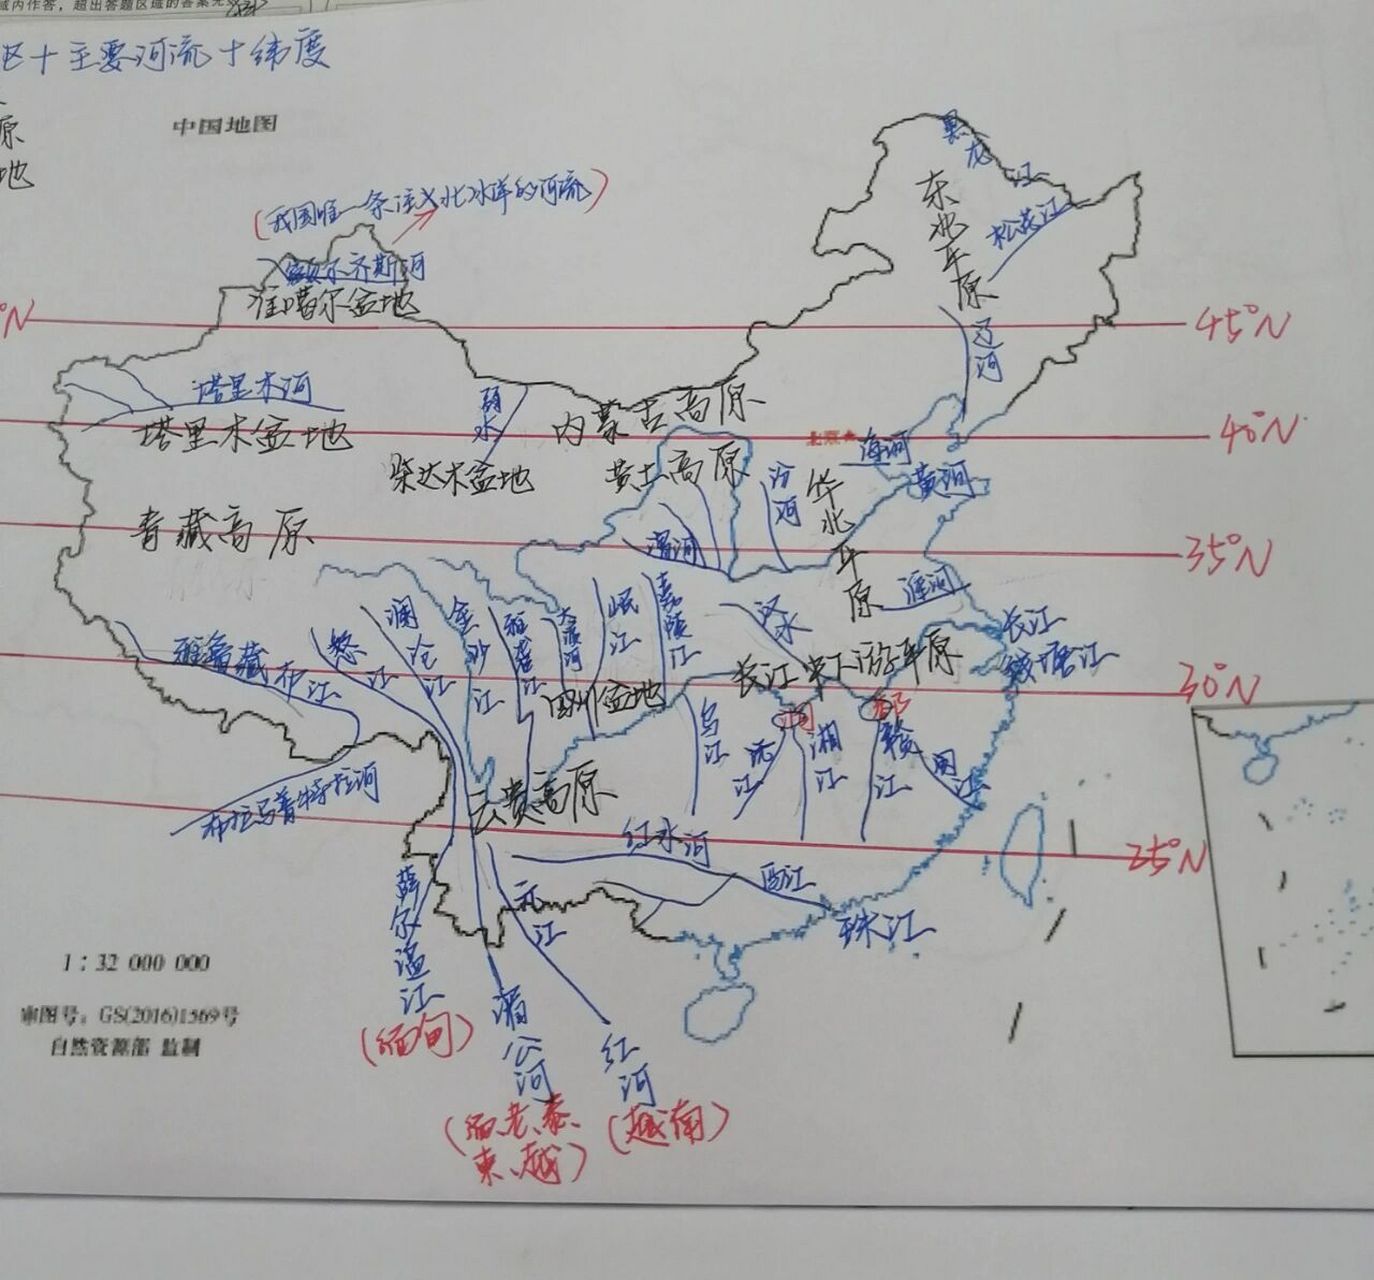 域内作答，超出答题区域的答案无
区+主要河流+纬度
原
地
中国地图
(我国唯一条注入北冰洋的河流)
额尔齐斯河
准噶尔盆地
黑龙江
东北平原
松花江
°N
45°N
辽河
塔里木河
塔里木盆地
弱水
内蒙古高原
北京★
海河
40°N
柴达木盆地
黄土高原
汾河
华北平原
黄河
青藏高原
渭河
35°N
淮河
雅鲁藏布江
怒江
澜沧江
金沙江
雅砻江
大渡河
岷江
嘉陵江
汉水
长江
钱塘江
长江中下游平原
四川盆地
30°N
乌江
沅江
洞
湘江
鄱
赣江
闽江
布拉马普特拉河
云贵高原
红水河
25°N
西江
珠江
元江
萨尔温江
(缅甸)
湄公河
(缅、老、泰、
柬、越)
红河
(越南)
1：32 000 000
审图号：GS(2016)1569号
自然资源部 监制